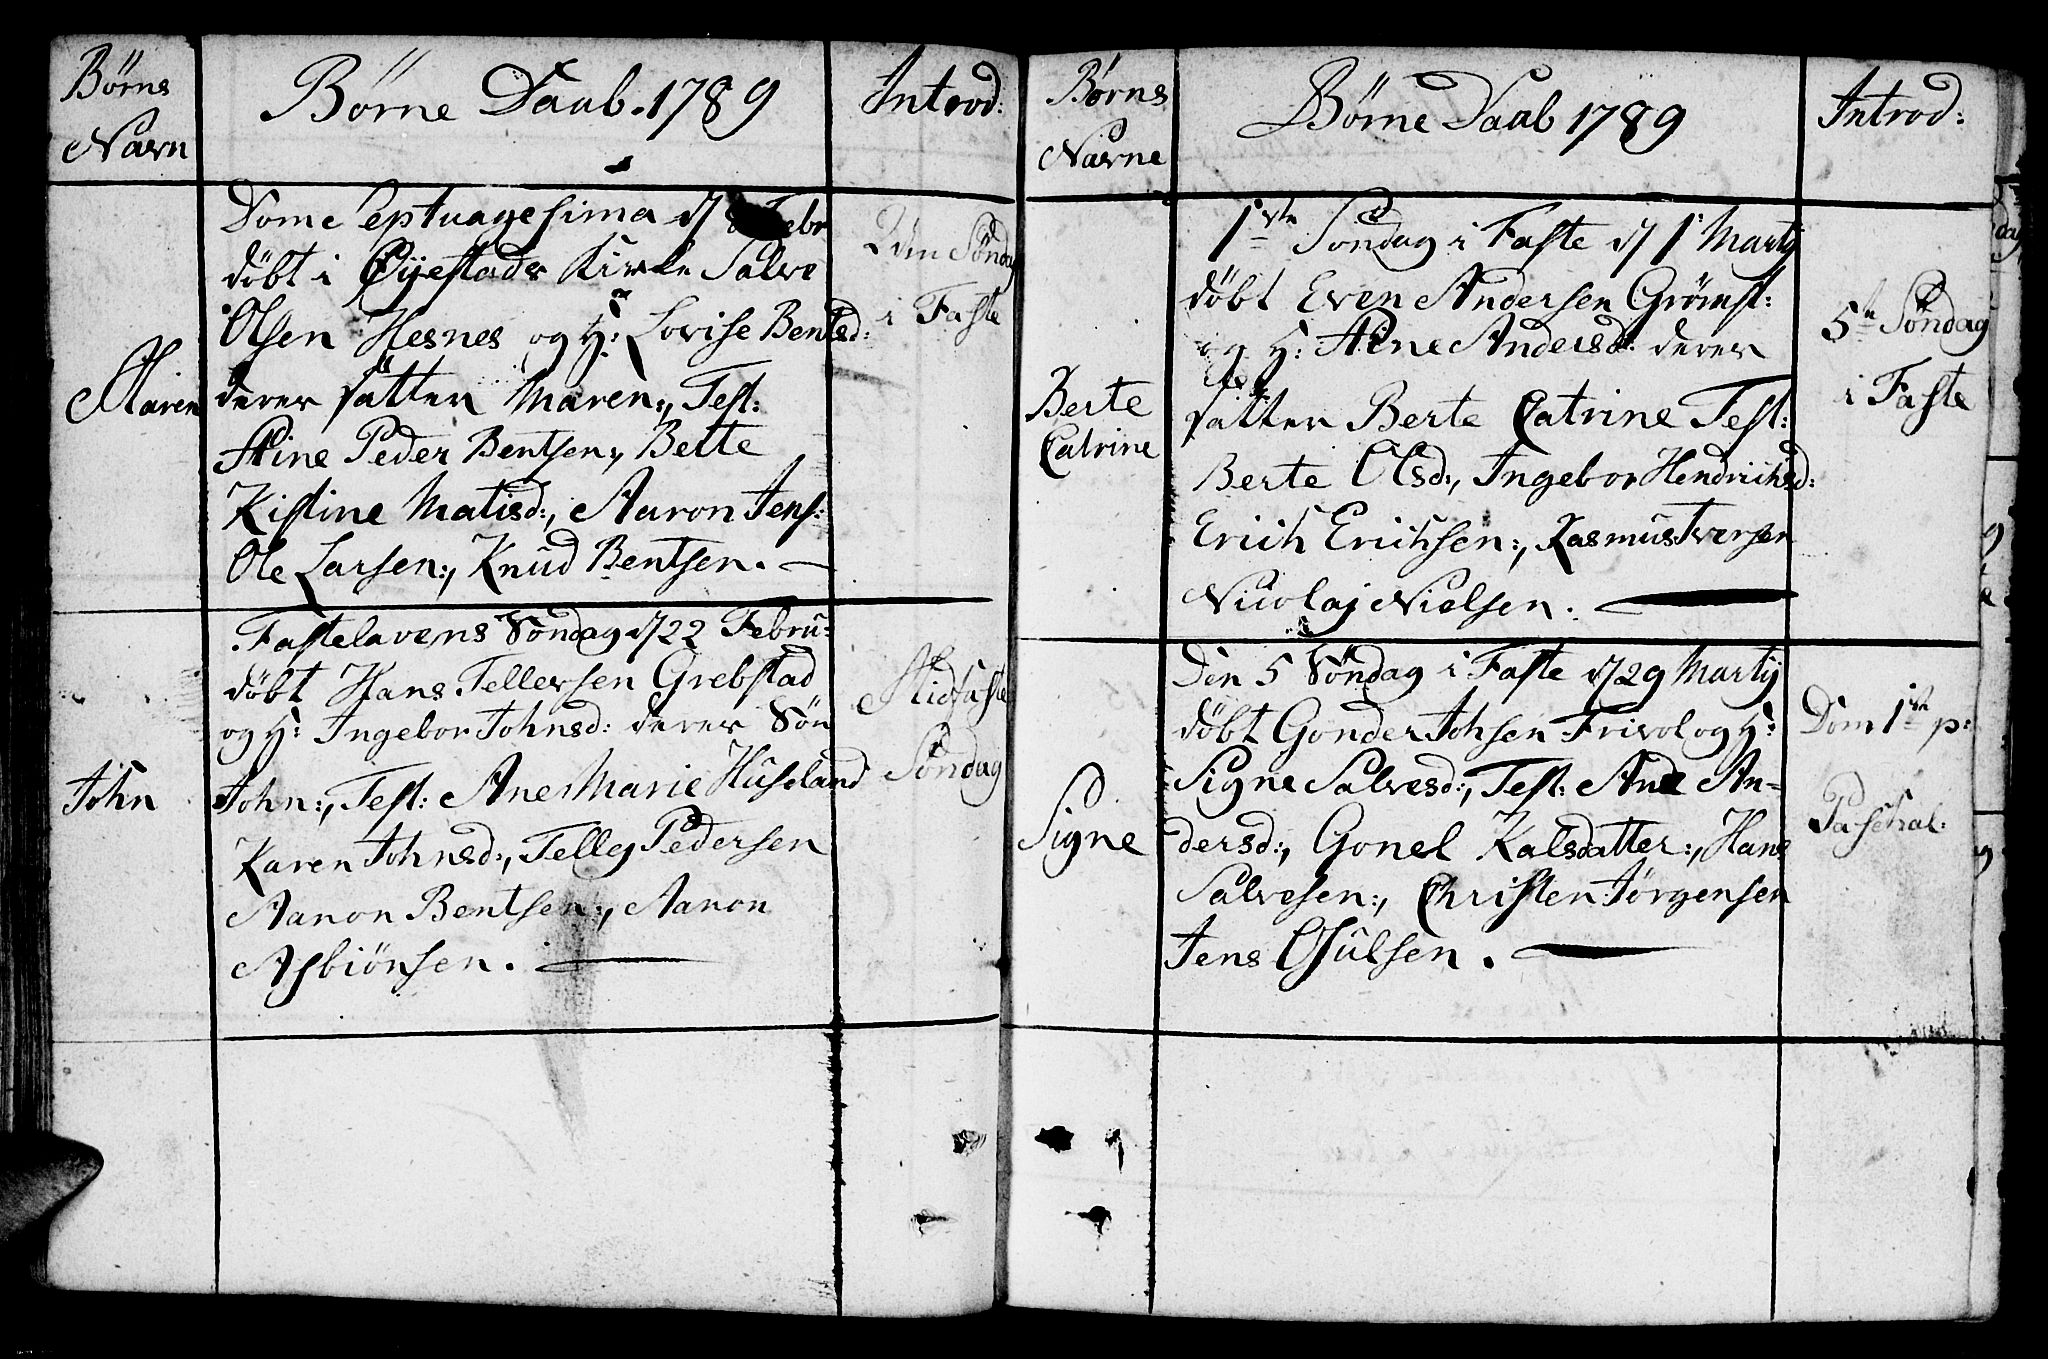 Børns
Navn
Børne Daab. 1789
Introd:
Maren
Dom: Septuagesima d/ 8 Febr
döbt i Øyestads Kirke Salve
Olsen Hesnes og H: Lovise Bentsd:
derer datter Maren:, Test:
Stine Peder Bentsen:, Bette
Kistine Matisd:, Aaron Jens:
Ole Larsen:, Knud Bentsen. —
2den Söndag
i Faste
John
Fastelavens Söndag d/ 22 Febru:
döbt Hans Tellefsen Grebstad
og H: Ingebor Johnsd: derer Sön
John:, Test: Ane Marie Huseland
Karen Johnsd:, Telleg Pedersen
Aanon Bentsen:, Aanon
Asbiönsen. —
Midfaste
Söndag
Børns
Navne
Børne Daab 1789
Introd:
Berte
Catrine
1ste Söndag i Faste d/ 1 Marty
döbt Even Andersen Grömst:
og H: Stine Andersd: derer
datter Berte Catrine Test:
Berte Olsd:, Ingebor Hendrichsd:
Erich Erichsen:, Rasmus Iversen
Nicolaj Nielsen. —
5te Söndag
i Faste
Signe
Den 5 Söndag i Faste d/ 29 Martij
döbt Gonder Johsen Frivol og H:
Signe Salvesd:, Test: Ane An-
dersd:, Gonel Kalsdatter:, Hans
Salvesen:, Christen Jörgensen
Jens Osulsen. —
Dom 1ste p:
Paschal: